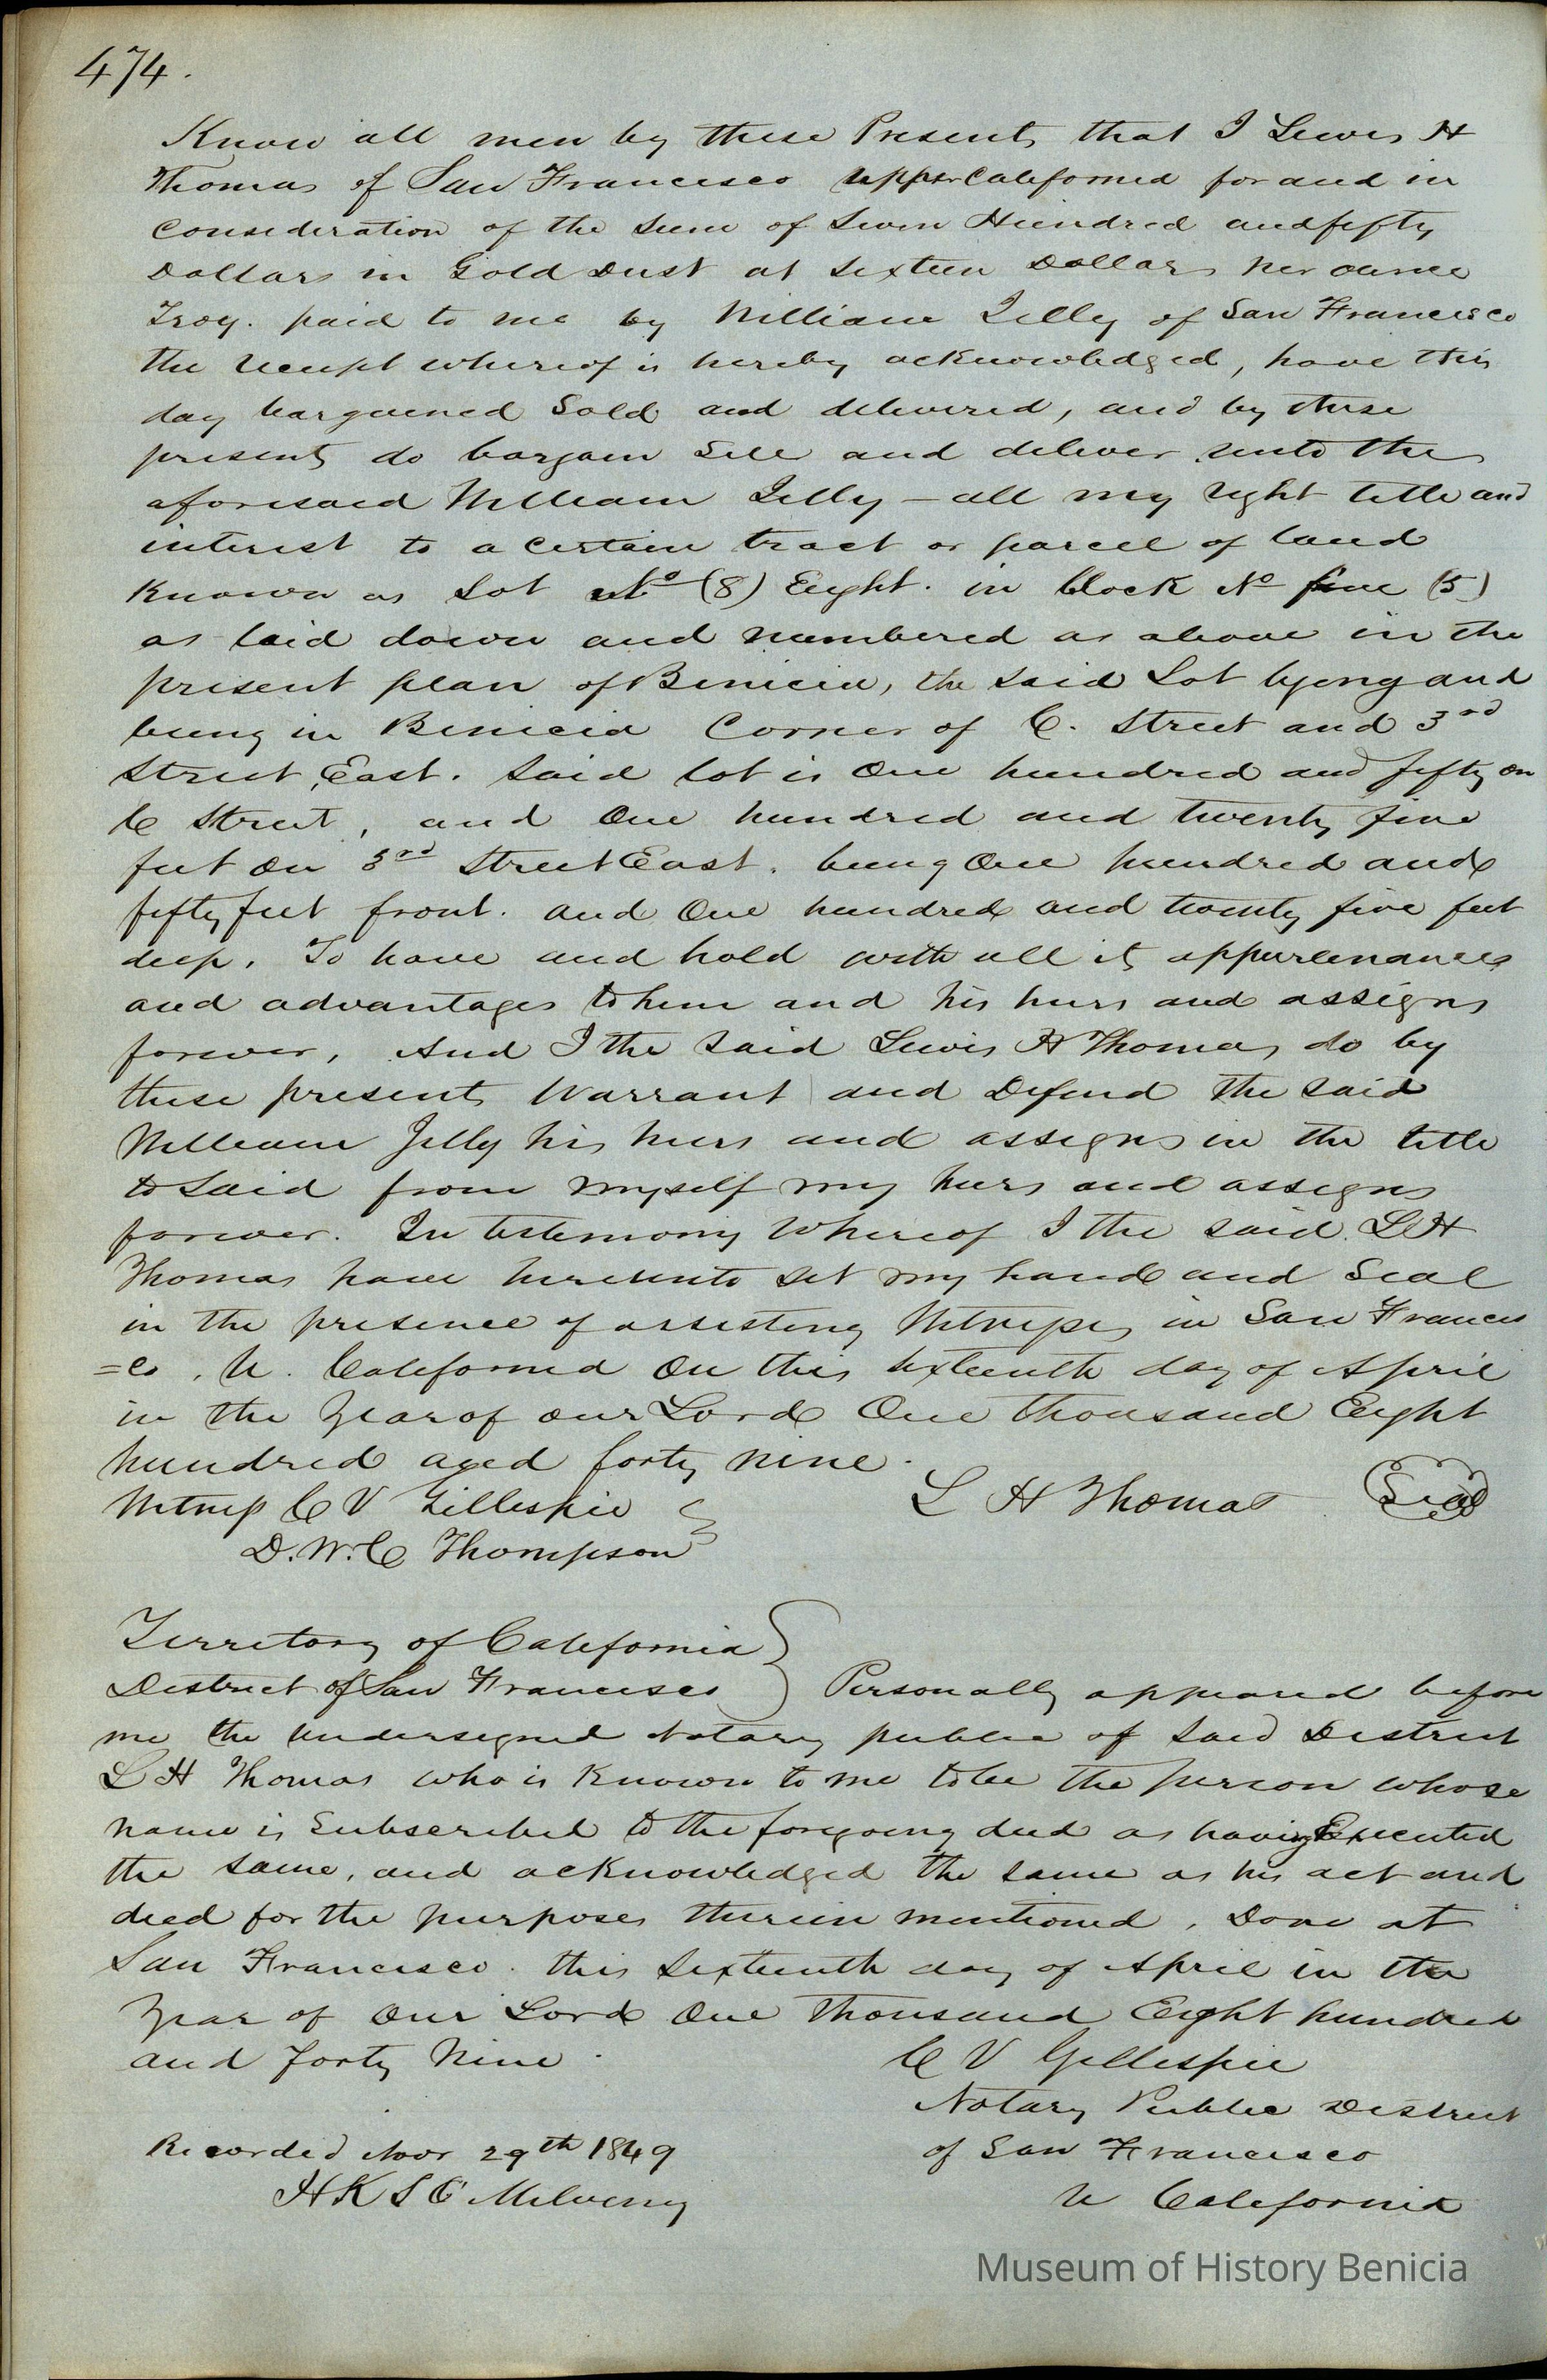 474.
Know all men by these Presents that I Lewis H
Thomas of San Francisco upper California for and in
Consideration of the sum of Seven Hundred and fifty
Dollars in Gold Dust at Sixteen Dollars per ounce
Troy. paid to me by William Jelly of San Francisco
the receipt whereof is hereby acknowledged, have this
day bargained Sold and delivered, and by these
presents do bargain Sell and deliver unto the
aforesaid William Jelly — all my right title and
interest to a certain tract or parcel of land
Known as Lot No (8) Eight. in block No five (5)
as laid down and numbered as above in the
present plan of Benicia, the said Lot lyeng and
being in Benicia Corner of C. Street and 3rd
Street, East. Said lot is One hundred and fifty on
C Street, and One hundred and twenty five
feet on 3rd Street East. being One hundred and
fifty feet front. and One hundred and twenty five feet
deep. To have and hold with all its appurtenances
and advantages to him and his heirs and assigns
forever, And I the said Lewis H Thomas do by
these presents Warrant and Defend the said
William Jelly his heirs and assigns in the title
to said from myself my heirs and assigns
forever. In testimony Whereof I the said L H
Thomas have hereunto set my hand and Seal
in the presence of assisting Witnesses in San Francis
=co, U. California On this sixteenth day of April
in the Year of our Lord One thousand Eight
hundred aged forty nine.
Witness C V Gillespie L H Thomas Seal
D. W. C Thompson
Territory of California
District of San Francisco } Personally appeared before
me the undersigned Notary public of said District
L H Thomas who is Known to me to be the person whose
name is Subscribed to the foregoing deed as having Executed
the same, and acknowledged the same as his act and
deed for the purposes therein mentioned. Done at
San Francisco. this Sixteenth day of April in the
Year of Our Lord One thousand Eight hundred
and forty Nine. C V Gillespie
Notary Public District
Recorded Nov 29th 1849 of San Francisco
H K S O'Melveny U California
Museum of History Benicia